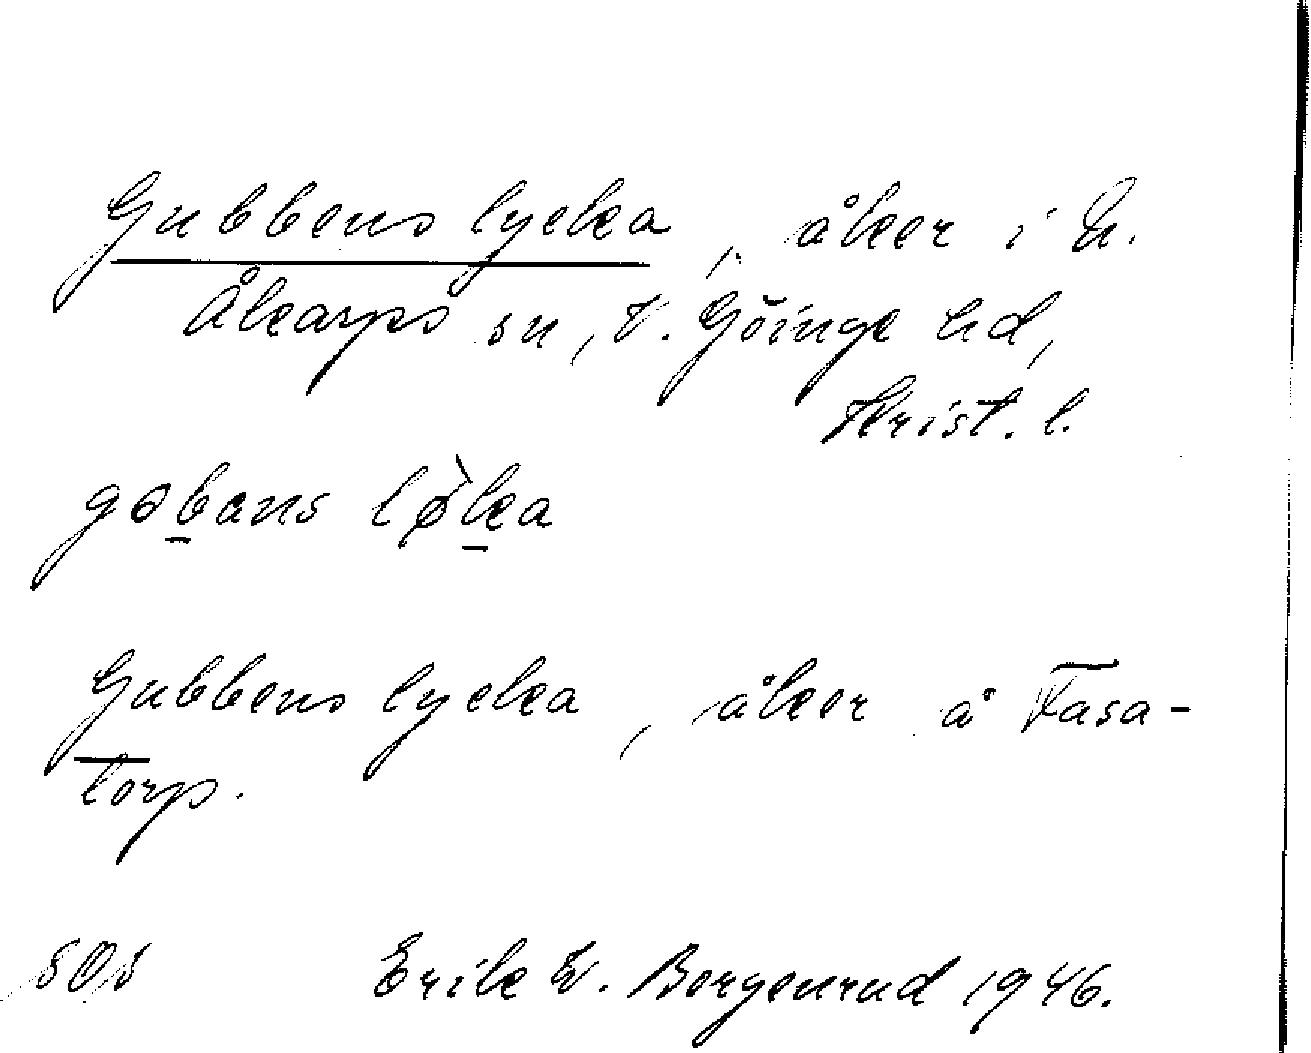 Gubbens lycka, åker i N.
Åkarps sn, V. Göinge hd,
Krist. l.
gɵb̠ans lø̀k̠a
Gubbens lycka, åker å Fasa-
torp.
Erik W. Bergenrud 1946.